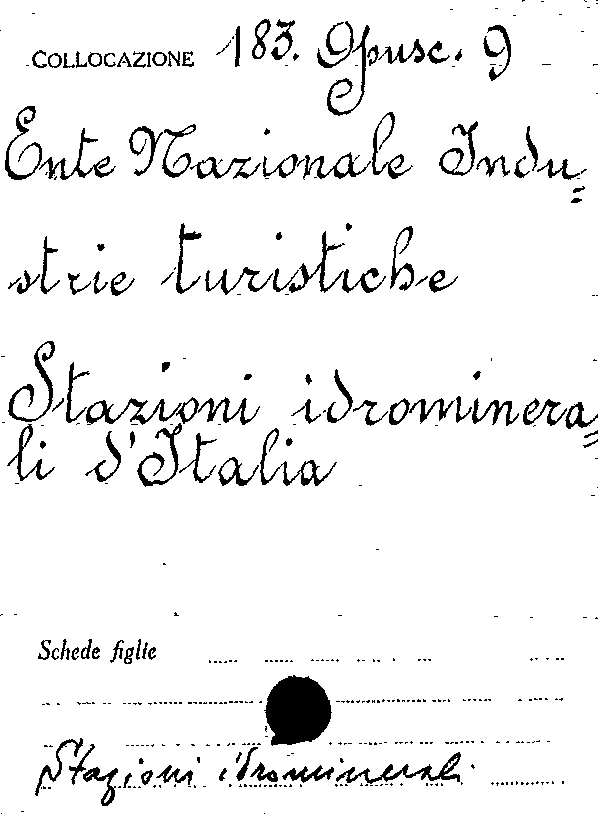 COLLOCAZIONE 183. Opusc. 9
Ente Nazionale Indu=
strie turistiche
Stazioni idrominera=
li d'Italia
Schede figlie
Stazioni idrominerali